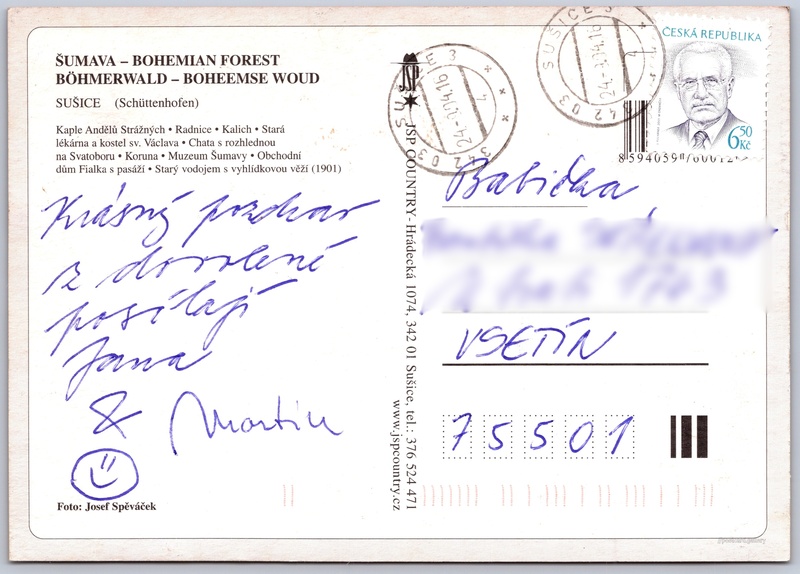 ŠUMAVA – BOHEMIAN FOREST
BÖHMERWALD – BOHEEMSE WOUD
SUŠICE (Schüttenhofen)
Kaple Andělů Strážných • Radnice • Kalich • Stará
lékárna a kostel sv. Václava • Chata s rozhlednou
na Svatoboru • Koruna • Muzeum Šumavy • Obchodní
dům Fialka s pasáží • Starý vodojem s vyhlídkovou věží (1901)
Krásný pozdrav
z dovolené
posílají
Jana
& Martin
Foto: Josef Spěváček
JSP
JSP COUNTRY - Hrádecká 1074, 342 01 Sušice, tel.: 376 524 471
www.jspcountry.cz
342 03
SUŠICE
ČESKÁ REPUBLIKA
650
Kč
Babička
VSETÍN
75501